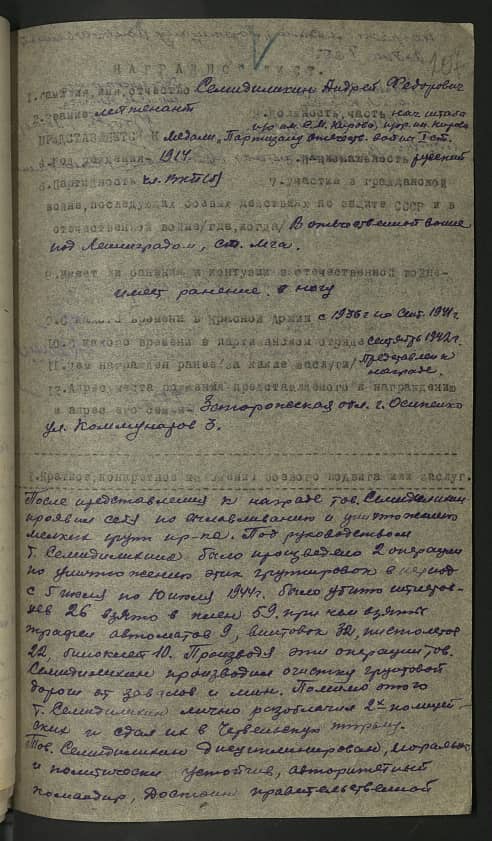 НАГРАДНОЙ ЛИСТ.
1. Фамилия, имя, отчество Семидилихин Андрей Федорович
2. Звание лейтенант 3. Должность, часть нач. штаба
п/о им. С.М. Кирова,
ПРЕДСТАВЛЯЕТСЯ К Медали „Партизану отечеств. войны I ст.
4. Год рождения - 1914 5. Национальность русский
6. Партийность чл. ВКП(б) 7. Участие в гражданской
войне, последующих боевых действиях по защите СССР и в
отечественной войне/где, когда/ В отечественной войне
под Ленинградом, ст. Мга.
8. Имеет ли ранения и контузии в отечественной войне-
имеет ранение в ногу
9. С какого времени в Красной Армии с 1936 г по сент. 1941 г.
10. С какого времени в партизанском отряде сентябрь 1942 г.
11. Чем награжден ранее/за какие заслуги/ Представлен к
награде.
12. Адрес места рождения представляемого к награждению
и адрес его семьи- Запорожская обл. г. Осипенко
ул. Коммунаров 3.
1. Краткое, конкретное изложение боевого подвига или заслуг.
После представления к награде тов. Семидилихин
проявил себя по вылавливанию и уничтожению
мелких групп пр-ка. Под руководством
т. Семидилихина было произведено 2 операции
по уничтожению этих группировок в период
с 5 июля по 10 июля 1944 г. было убито
26 взято в плен 59. при чем взяты
трофеи автоматов 9, винтовок 32, пистолетов
22, биноклей 10. Производя эти операции тов.
Семидилихин производил очистку грунтовой
дороги от завалов и мин. Помимо этого
т. Семидилихин лично разоблачил 2х полицей-
ских и сдал их в Червенскую тюрьму.
Тов. Семидилихин дисциплинирован, морально
и политически устойчив, авторитетный
командир, Достоин правительственной